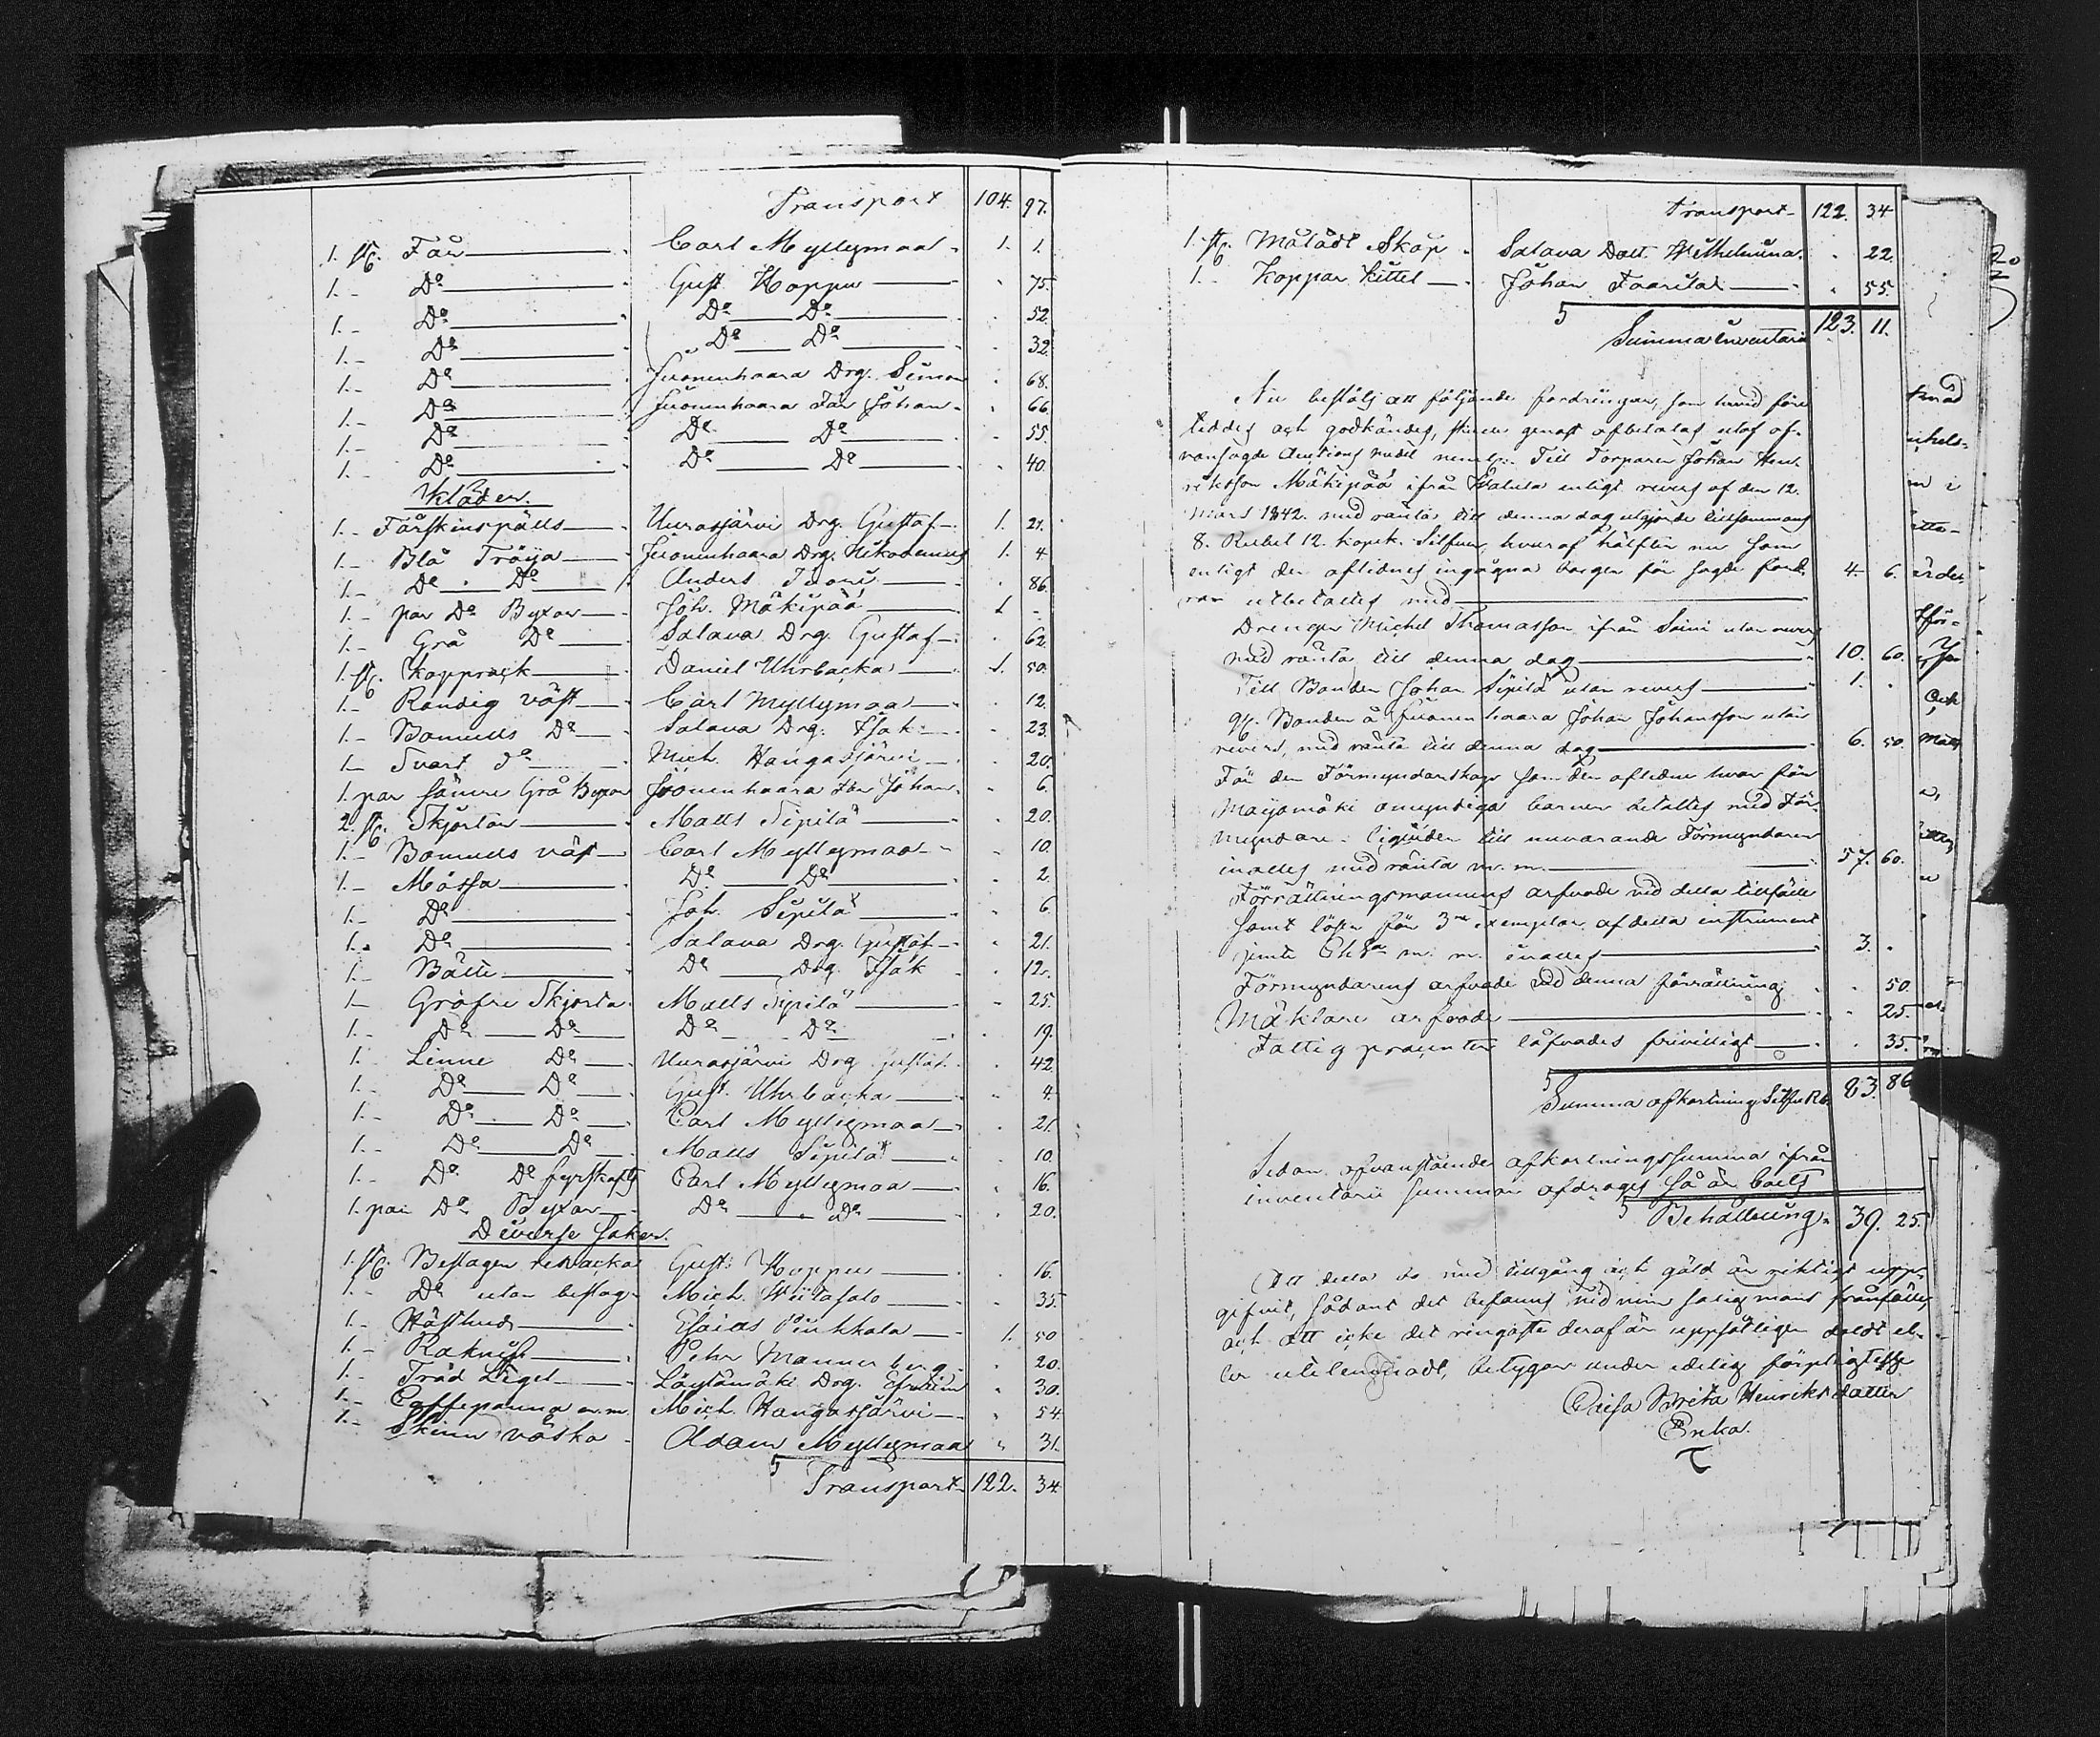 Transport 104. 97.
1. st. Får Carl Myllymaa 1. 1.
1. - Do Gust. Hoppu 75.
1. - Do Do Do 52.
1. - Do Do Do 32.
1. - Do Juonenhaara Drg. Simon 68.
1. - Do Juonenhaara Fär Johan 66.
1. - Do Do Do 55.
1. - Do Do Do 40.
Kläder.
1. - Fårskinspälls Uurasjärvi Drg. Gustaf 1. 21.
1. - Blå Tröija Juonenhaara Drg. Nikodemus 1. 4
1. - Do Do Anders 86.
1. - par Do Byxor Joh. Mäkipää 1 -
1. - Grå Do Salava Drg. Gustaf 62.
1. st. Kapprock Daniel Uhrbacka 1. 50.
1. - Randig väst Carl Myllymaa 12.
1. - Bomulls Do Salava Drg. Isak 23.
1. - Svart do Mich. Hangasjärvi 20.
1. par sämre Grå Byxor Juonenhaara Johan 6.
2. st. Skjortor Matts Sipilä 20.
1. - Bomulls väst Carl Myllymaa 10.
1. - Mössa Do Do 2.
1. - Do Joh. Sipilä 6
1. - Do Salava Drg. Gustaf 21.
1. - Bälte Do Drg. Isak 12.
1. - Gröfre Skjorta Matts Sipilä 25.
1. - Do Do Do Do 19.
1. - Linne Do Uurasjärvi Drg Gustaf 42.
1. - Do Do Gust. Uhrbacka 4.
1. - Do Do Carl Myllymaa 21.
1. - Do Do Matts Sipilä 10
1. - Do Do fyrskafts Carl Myllymaa 16.
1. par Do Byxor Do Do 20.
Diverse saker.
1. st. Beslagen Gust. Hoppu 16.
1. - Do utan beslag Mich. Wiitasalo 35.
1. - Hästhud Esaias Pinkkala 1. 50
1. - Raknif Pehr Mannerberg 20.
1. - Träd Lägel Löytämäki Drg. Efraim 30.
1. - Caffepanna m.m. Mich. Hangasjärvi 54
1. - Skinn väska Adam Myllymaa 31.
Transport 122. 34
Transport 122. 34
1. st. Måladt Skåp Salava Dott. Wilhelmina 22.
1. - Koppar Kittel Johan Faarila 55.
Summa Inventarii 123. 11.
Nu befölj att följande fordringar, som hvad före
teddes och godkändes, skulle genast afbetalas utaf of-
vansagde Auctions medel neml: Till Torparen Johan Hen-
riksson Mäkipää ifrån enligt revers af den 12.
Mars 1842. med ränta till denna dag utgjorde tillsammans
8. Rubel 12. kopek. Silfver, hvaraf hälften nu som
enligt den aflidnes ingågna borgen för sagde ford- 4. 6.
ran utbetaltes med
Drengen Michel Thomasson ifrån Soini utan revers
med ränta till denna dag 10. 60.
Till Bonden Johan Sipilä utan revers 1. .
Bonden å Juonenhaara Johan Johansson utan
revers, med ränta till denna dag 6. 50.
För den Förmyndarskap som den aflidne hvar för
Maijamäki omyndiga barnen betaltes med För-
myndare till nuvarande Förmyndaren
inalles med ränta m. m. 57. 60.
Förrättningsmannens arfvode vid detta tillfälle
samt lösen för 3ne exemplar af detta instrument
jemte m. m. inalles 3. .
Förmyndarens arfvode vid denna förrättning 50.
Mäklare arfvode 25.
Fattig procenter låfvades frivilligt 35.
Summa afkortning Silfver Rb. 83. 86
Sedan ofvanstående afkortningssumma ifrån
inventarii summan afdrages så är boets
Behållning 39. 25.
Att detta bo med tillgång och gäld är riktigt upp-
gifvit, sådant det befanns vid min salig mans frånfälle
och att icke det ringaste deraf är uppsåtligen doldt el-
ler utelemnadt, betygar under edelig förpligtelse
Caisa Brita Henriksdotter
Enka.